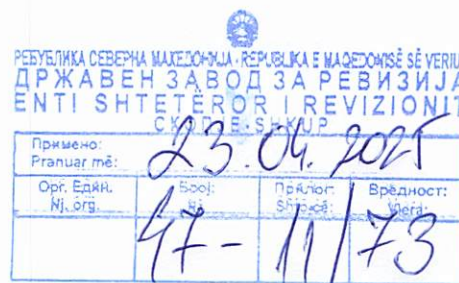 РЕПУБЛИКА СЕВЕРНА МАКЕДОНИЈА - REPUBLIKA E MAQEDONISË SË VERIUT
ДРЖАВЕН ЗАВОД ЗА РЕВИЗИЈА
ENTI SHTETËROR I REVIZIONIT
СКОПЈЕ - SHKUP
Примено:
Pranuar më: 23.04.2025
Орг. Един. Број: Прилог: Вредност:
Nj. org. Vlera:
47- 11/73